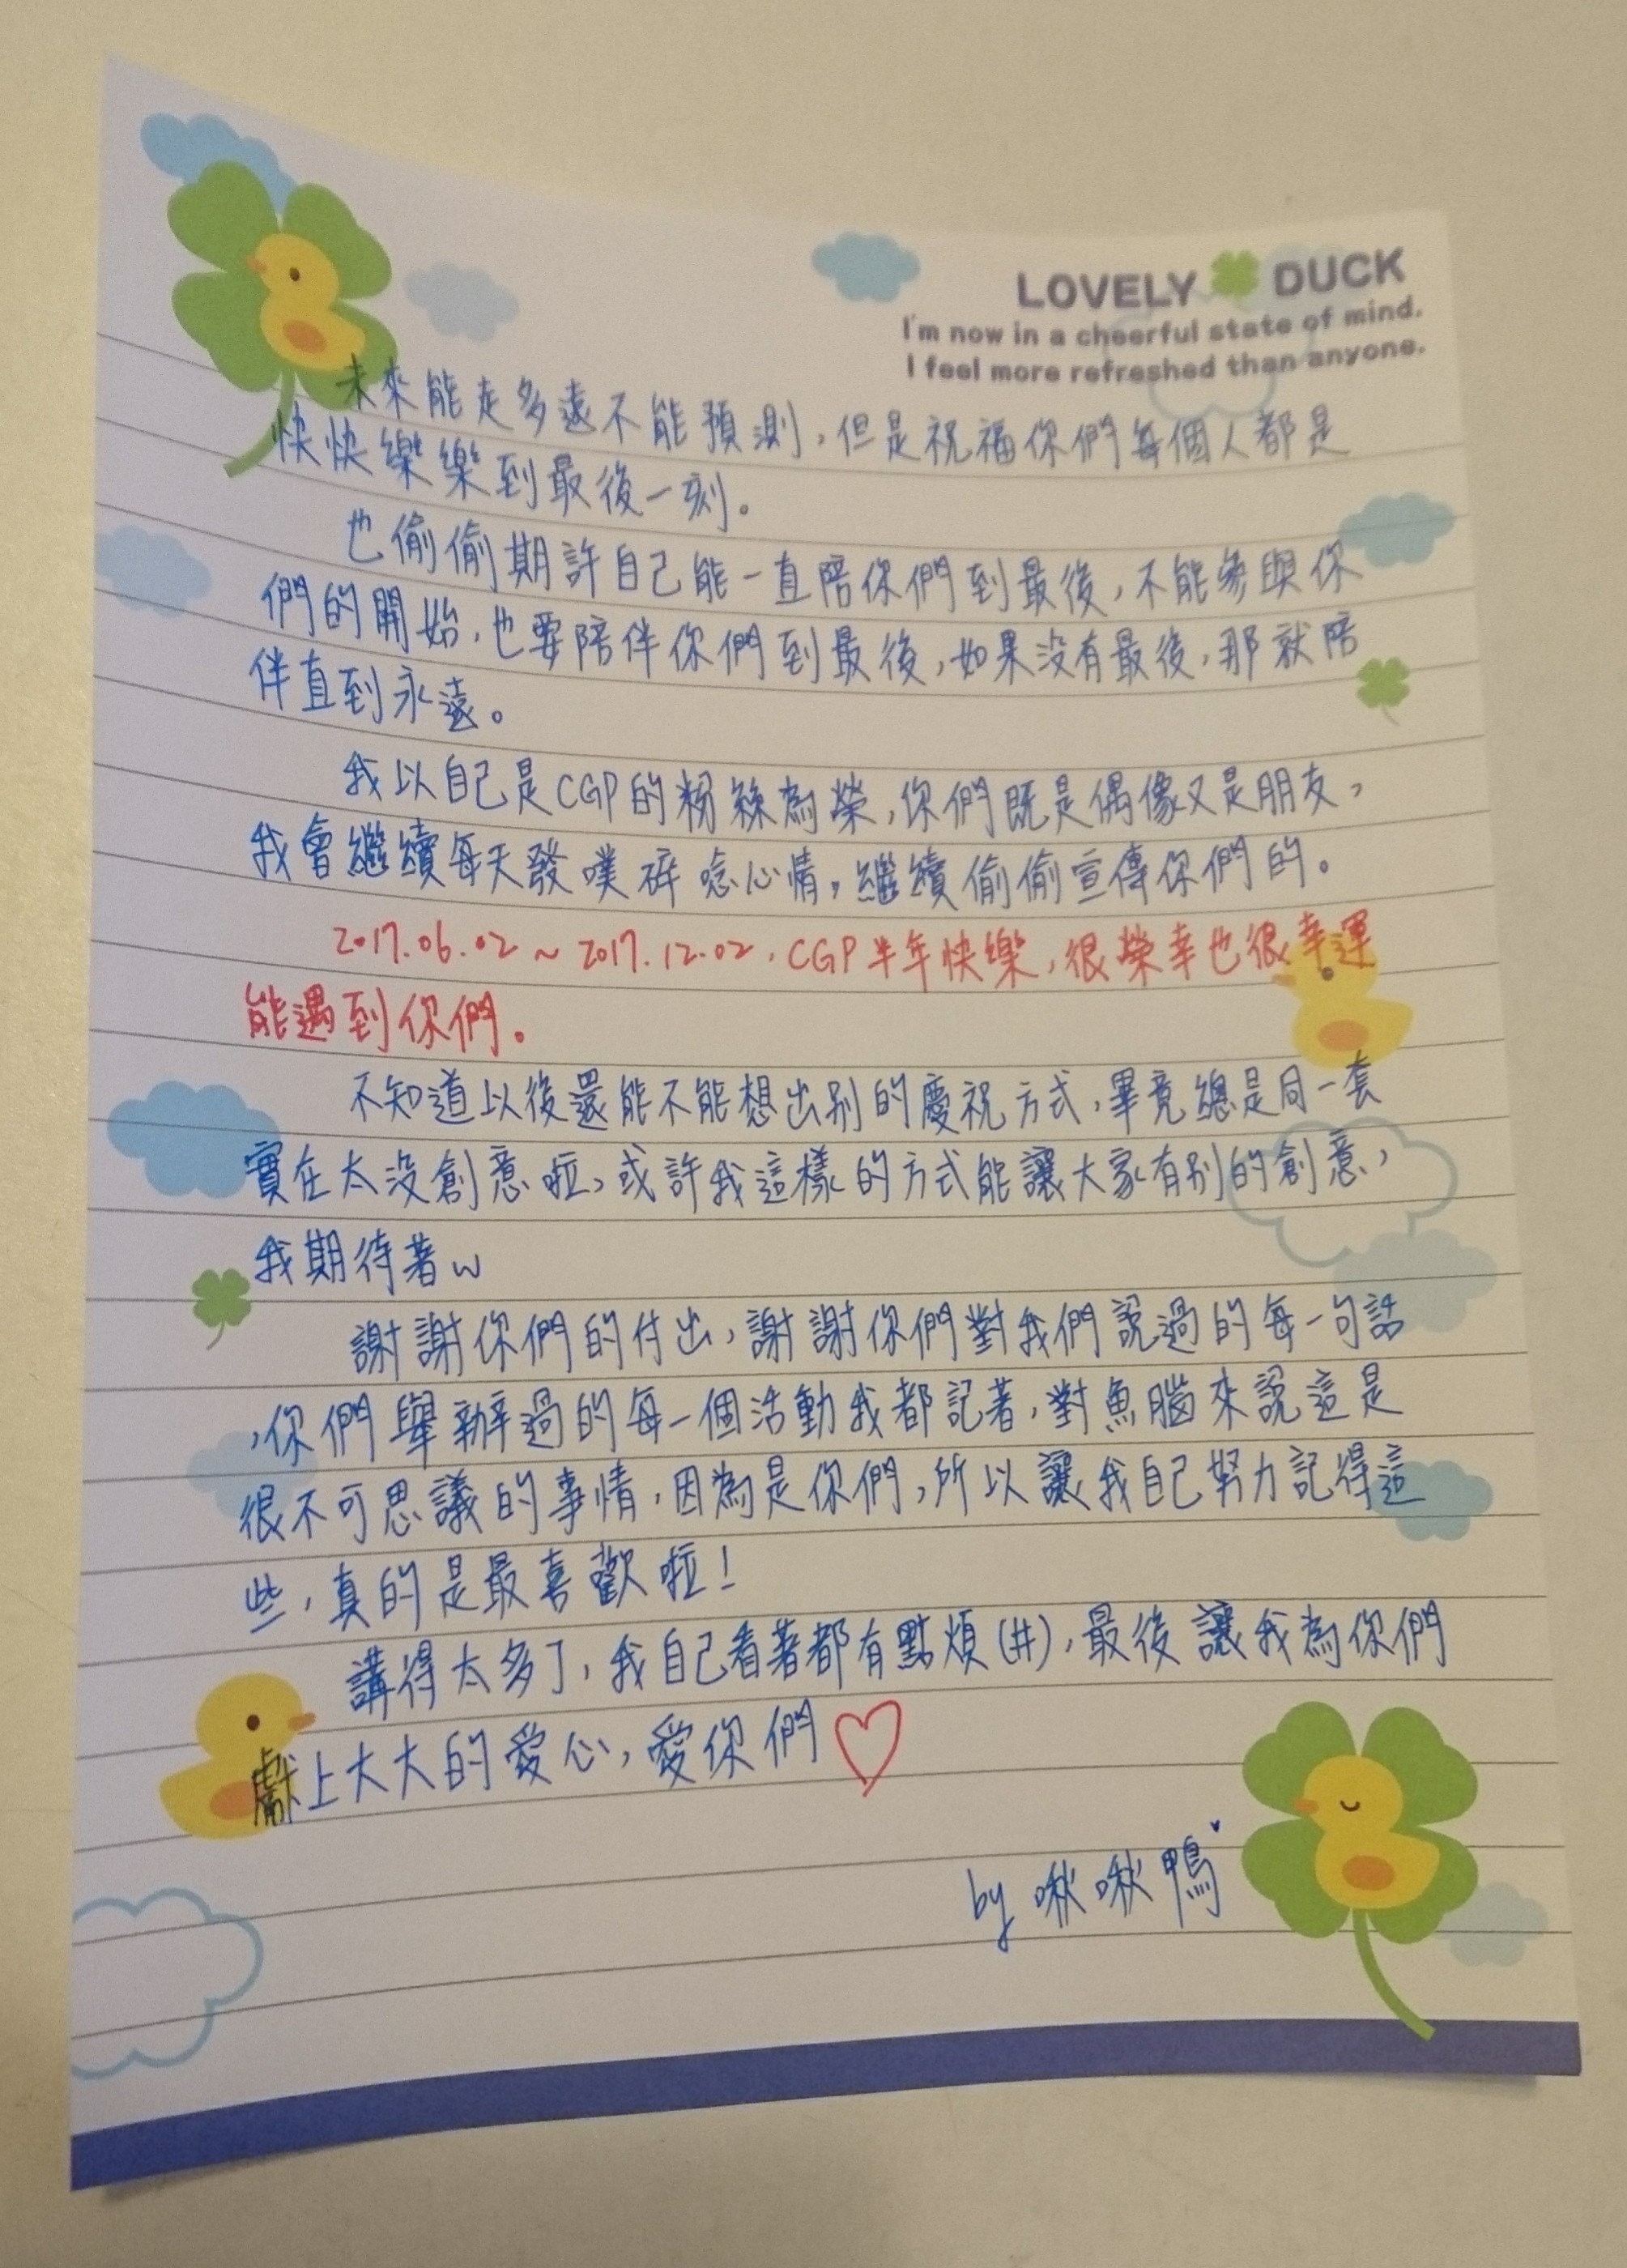 LOVELY DUCK
I'm now in a cheerful state of mind.
I feel more refreshed than anyone.
未來能走多遠不能預測,但是祝福你們每個人都是
快快樂樂到最後一刻。
也偷偷期許自己能一直陪你們到最後,不能參與你
們的開始,也要陪伴你們到最後,如果沒有最後,那就陪
伴直到永遠。
我以自己是CGP的粉絲為榮,你們既是偶像又是朋友,
我會繼續每天發噗碎唸心情,繼續偷偷宣傳你們的。
2017.06.02~2017.12.02,CGP半年快樂,很榮幸也很幸運
能遇到你們。
不知道以後還能不能想出別的慶祝方式,畢竟總是同一套
實在太沒創意啦,或許我這樣的方式能讓大家有別的創意,
我期待著w
謝謝你們的付出,謝謝你們對我們說過的每一句話
,你們舉辦過的每一個活動我都記著,對魚腦來說這是
很不可思議的事情,因為是你們,所以讓我自己努力記得這
些,真的是最喜歡啦!
講得太多了,我自己看著都有點煩(#),最後讓我為你們
獻上大大的愛心,愛你們♡
by 啾啾鴨